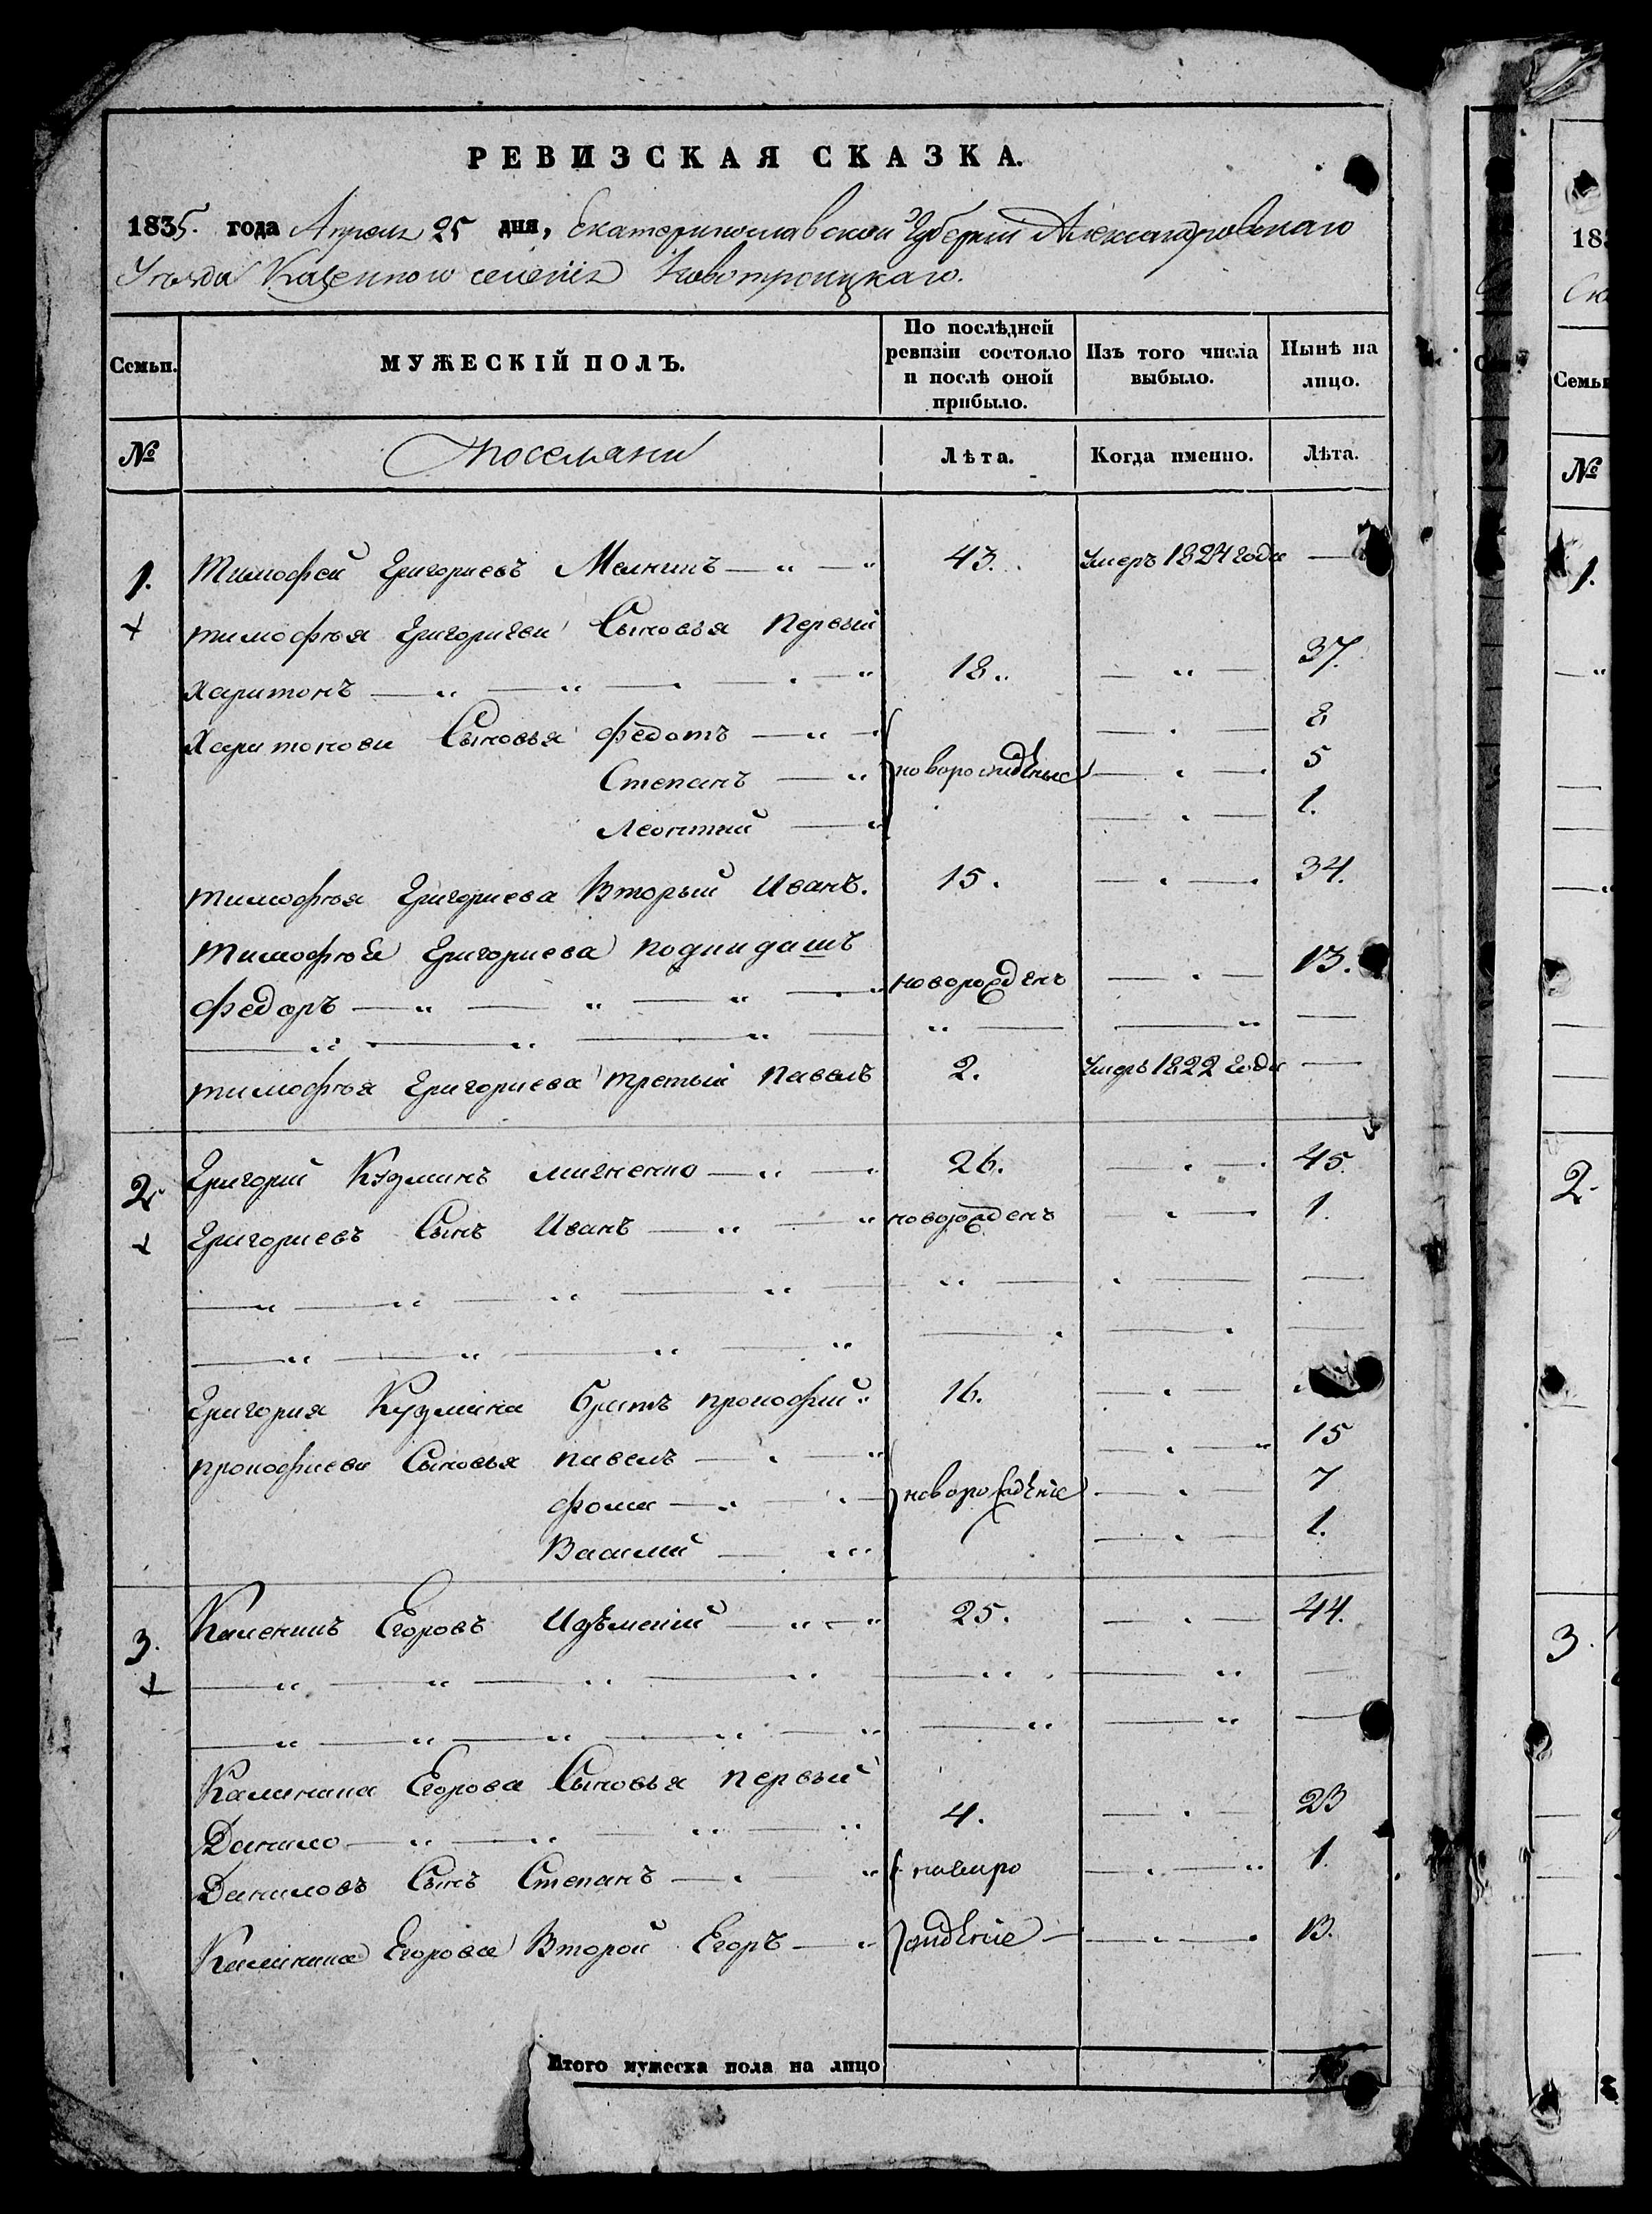 РЕВИЗСКАЯ СКАЗКА.
1835. года Апреля 25 дня, Екатеринославской Губернии Александровскаго
Уезда Казенного селения Новотроицкаго.
Семьи. МУЖЕСКІЙ ПОЛЪ. По послѣдней ревизіи состояло и послѣ оной прибыло. Изъ того числа выбыло. Нынѣ на лицо.
№ поселяни Лѣта. Когда именно. Лѣта.
1. Тимофей Григориевъ 43. Умеръ 1824 года —
тимофѣя Григориева Сыновья первый
Харитонъ 18. — 37.
Харитонови Сыновья федотъ — 8
Степанъ новорожденые — 5
Леонтий — 1.
тимофѣя Григориева Вторый Иванъ. 15. — 34.
тимофѣя Григориева
федоръ новорожденъ — 13.
тимофѣя Григориева третый павелъ 2. Умеръ 1822 года —
2. Григорий Кузминъ 26. — 45.
Григориевъ Сынъ Иванъ новорожденъ — 1.
Григория Кузмина братъ прокофий 16. —
прокофиеви Сыновья павелъ — 15
фома новорожденіе — 7
Василий — 1.
3. Каленикъ Егоровъ 25. — 44.
Каленика Егорова Сыновья первый
Данило 4. — 23
Даниловъ Сынъ Степанъ — 1.
Каленика Егорова Второй Егоръ — 13.
Итого мужеска пола на лицо
183
Семьи
№
1.
2.
3.